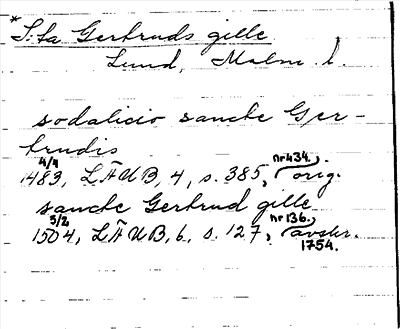 * S:ta Gertruds gille
Lund, Malm. l.
sodalicio sancte Ger-
trudis
4/4 nr 434.,
1483, LÄUB, 4, s. 385, orig.
sancte Gertrud gille
5/2 nr 136.,
1504, LÄUB, 6, s. 127, avskr.
1754.